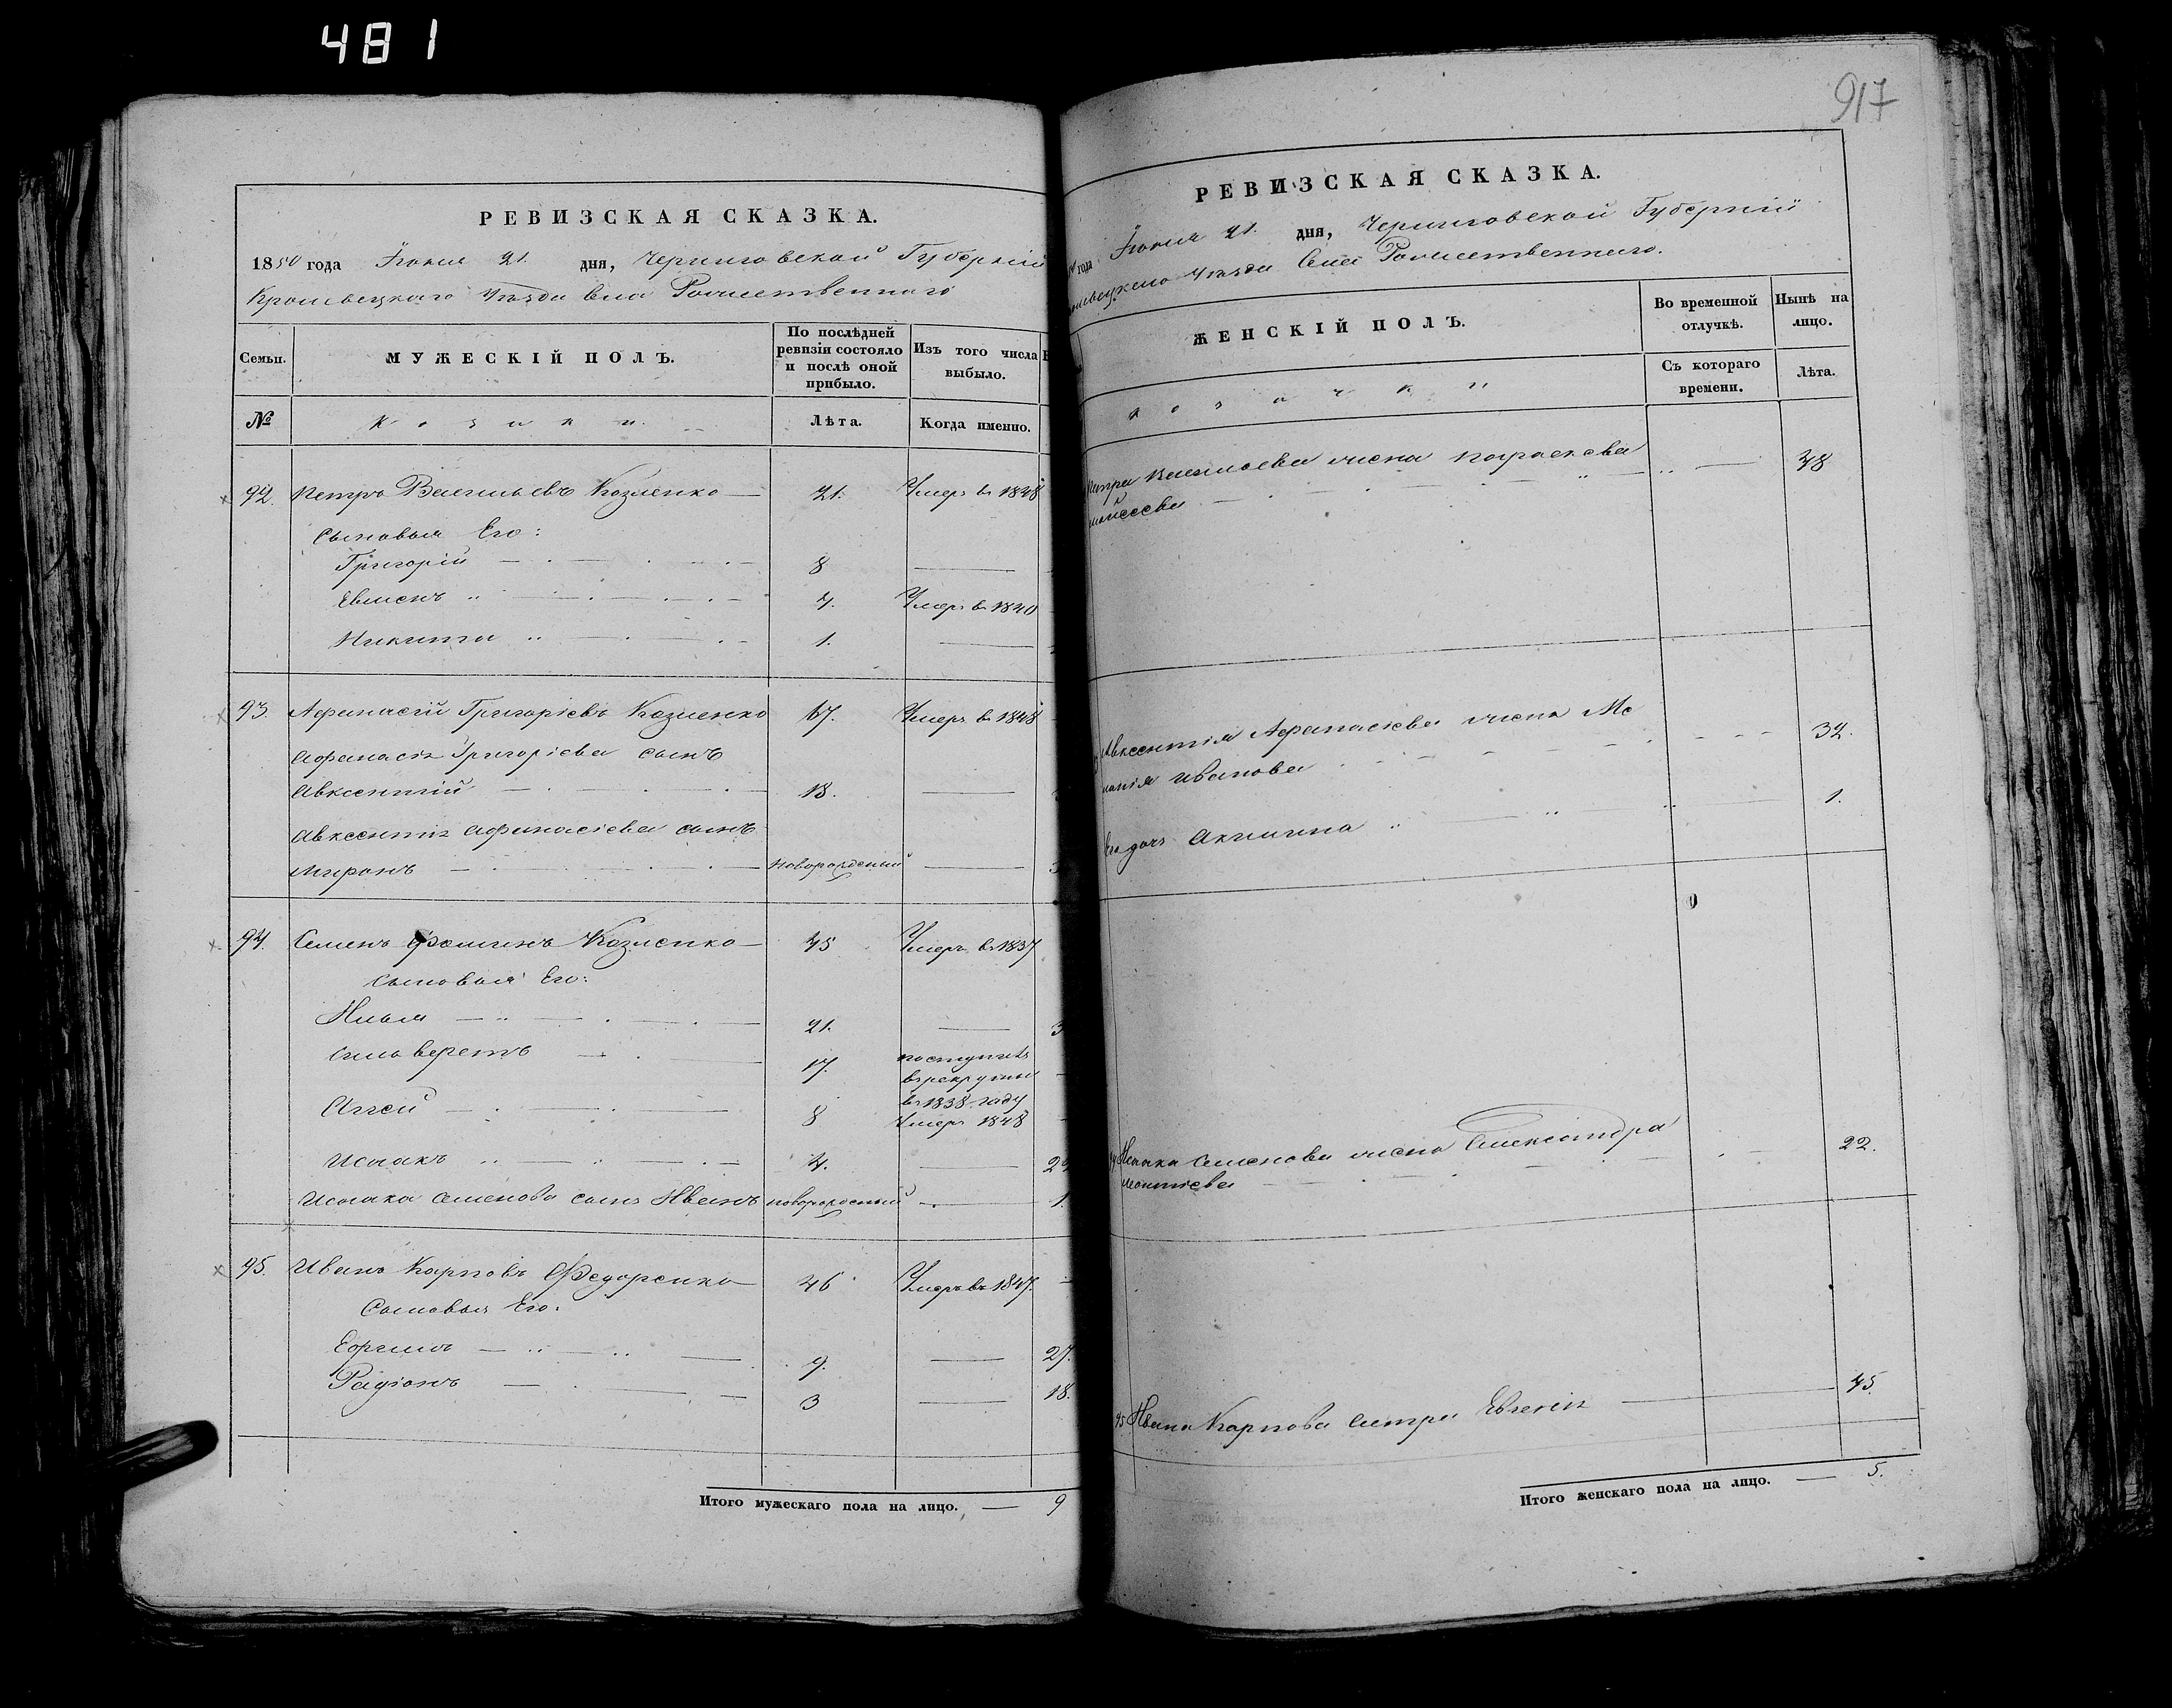 481
917
РЕВИЗСКАЯ СКАЗКА.
1850 года Іюня 21. дня, Черниговской Губерніи
Кролевецкаго Уѣзда Села Рождественнаго
Семьи.
МУЖЕСКІЙ ПОЛЪ.
По послѣдней ревизіи состояло и послѣ оной прибыло.
Изъ того числа выбыло.
№
Козаки.
Лѣта.
Когда именно.
92. Петръ Васильевъ Козленко 21. Умеръ въ 1848
Сыновья Его:
Григорій 8
Евменъ 4. Умеръ в 1840
Никита 1.
93. Афанасій Григорьевъ Козленко 67. Умеръ въ 1848
Афанасія Григорьева сынъ
Авксентій 18.
Авксентія Афанасіева сынъ
Миронъ новорожденный
94. Семенъ Фоминъ Козленко 45 Умеръ в 1837
Сыновья Его:
Илья 21.
Сильверстъ 17. поступилъ
въ рекруты
в 1838 году
Аггей 8 Умеръ 1848
Исаакъ 4. 22
Исаака Семенова сынъ Иванъ новорожденный 1.
95. Иванъ Карповъ Федоренко 46 Умеръ въ 1847.
Сыновья Его:
Ефримъ 9. 27.
Радіонъ 3 18.
Итого мужескаго пола на лицо. 9
РЕВИЗСКАЯ СКАЗКА.
года Іюня 21. дня, Черниговской Губерніи
Уѣзда Села Рождественнаго.
ЖЕНСКІЙ ПОЛЪ.
Во временной отлучкѣ.
Нынѣ на лицо.
Съ котораго времени.
Лѣта.
Козачки
Петра Васильева жена Параскева 48
Мойсеева
Авксентія Афанасіева жена Ме
ланія Иванова 32.
Его дочь Акилина 1.
Исаака Семенова жена Александра 22.
Леонтіева
95 Ивана Карпова сестра Евгенія 45.
Итого женскаго пола на лицо. 5.